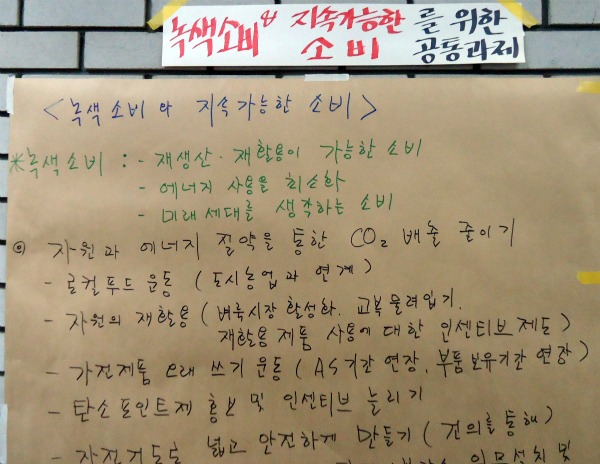 녹색소비와 지속가능한 소비 를 위한 공통과제
< 녹색소비와 지속가능한 소비 >
※녹색소비 : - 재생산·재활용이 가능한 소비
- 에너지 사용을 최소화
- 미래세대를 생각하는 소비
◎ 자원과 에너지 절약을 통한 CO₂ 배출 줄이기
- 로컬푸드 운동 (도시농업과 연계)
- 자원의 재활용 (벼룩시장 활성화. 교복 물려입기.
재활용 제품 사용에 대한 인센티브제도)
- 가전제품 오래 쓰기 운동 (AS기간 연장, 부품보유기간 연장)
- 탄소포인트제 홍보 및 인센티브 늘리기
- 자전거도로 넓고 안전하게 만들기 (건의를 통해)